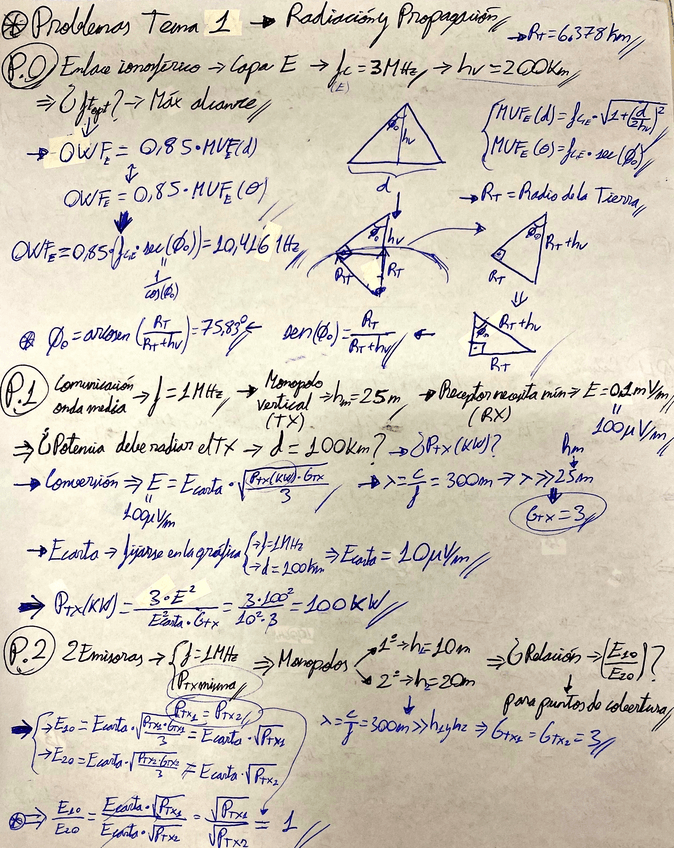 ⊛ Problemas Tema 1 → Radiación y Propagación
→ R_T = 6.378 km
P.0 Enlace ionosférico → Capa E → fc = 3MHz → hv = 200Km
(E)
⇒ ¿f_opt? → Máx alcance
→ OWF_E = 0,85·MUF_E(d)
↕
OWF_E = 0,85·MUF_E(θ)
φ₀ hv
d
MUF_E(d) = fc_E·√(1+(d/2hv)²)
MUF_E(θ) = fc_E·sec(φ₀)
→ R_T = Radio de la Tierra
OWF_E = 0,85·fc_E·sec(φ₀) = 10,416 MHz
1/cos(φ₀)
φ₀ hv R_T R_T
φ₀ R_T+hv R_T
⊛ φ₀ = arcosen (R_T/(R_T+hv)) = 75,83º ← sen(φ₀) = R_T/(R_T+hv) ←
φ₀ R_T+hv R_T
P.1 Comunicación onda media → f = 1MHz → Monopolo vertical (TX) → hm = 25m → Receptor necesita mín → E = 0,1mV/m
(RX)
100μV/m
⇒ ¿Potencia debe radiar el TX → d = 100Km? → ¿P_TX(KW)?
→ Conversión ⇒ E = E_carta·√(P_TX(KW)·G_TX/3) → λ = c/f = 300m → λ >> 25m
hm
100μV/m
G_TX = 3
→ E_carta → fijarse en la gráfica { → f = 1MHz → d = 100km ⇒ E_carta = 10μV/m
→ P_TX(KW) = 3·E²/(E²carta·G_TX) = 3·100²/(10²·3) = 100 KW
P.2 2 Emisoras → { f = 1MHz P_TX misma ⇒ Monopolos 1º → h = 10m 2º → h = 20m ⇒ ¿Relación → (E10/E20)?
para puntos de cobertura
P_TX1 = P_TX2
→ E10 = E_carta·√(P_TX1·G_TX1/3) = E_carta·√P_TX1
λ = c/f = 300m >> h1 y h2 ⇒ G_TX1 = G_TX2 = 3
→ E20 = E_carta·√(P_TX2·G_TX2/3) = E_carta·√P_TX2
⊛ ⇒ E10/E20 = E_carta·√P_TX1/(E_carta·√P_TX2) = √P_TX1/√P_TX2 = 1